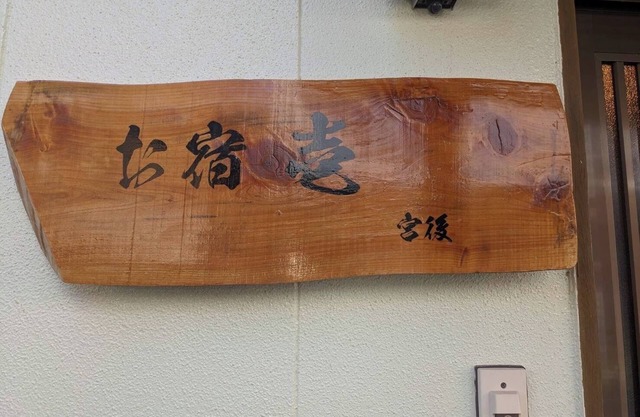 お宿 壱
宮後